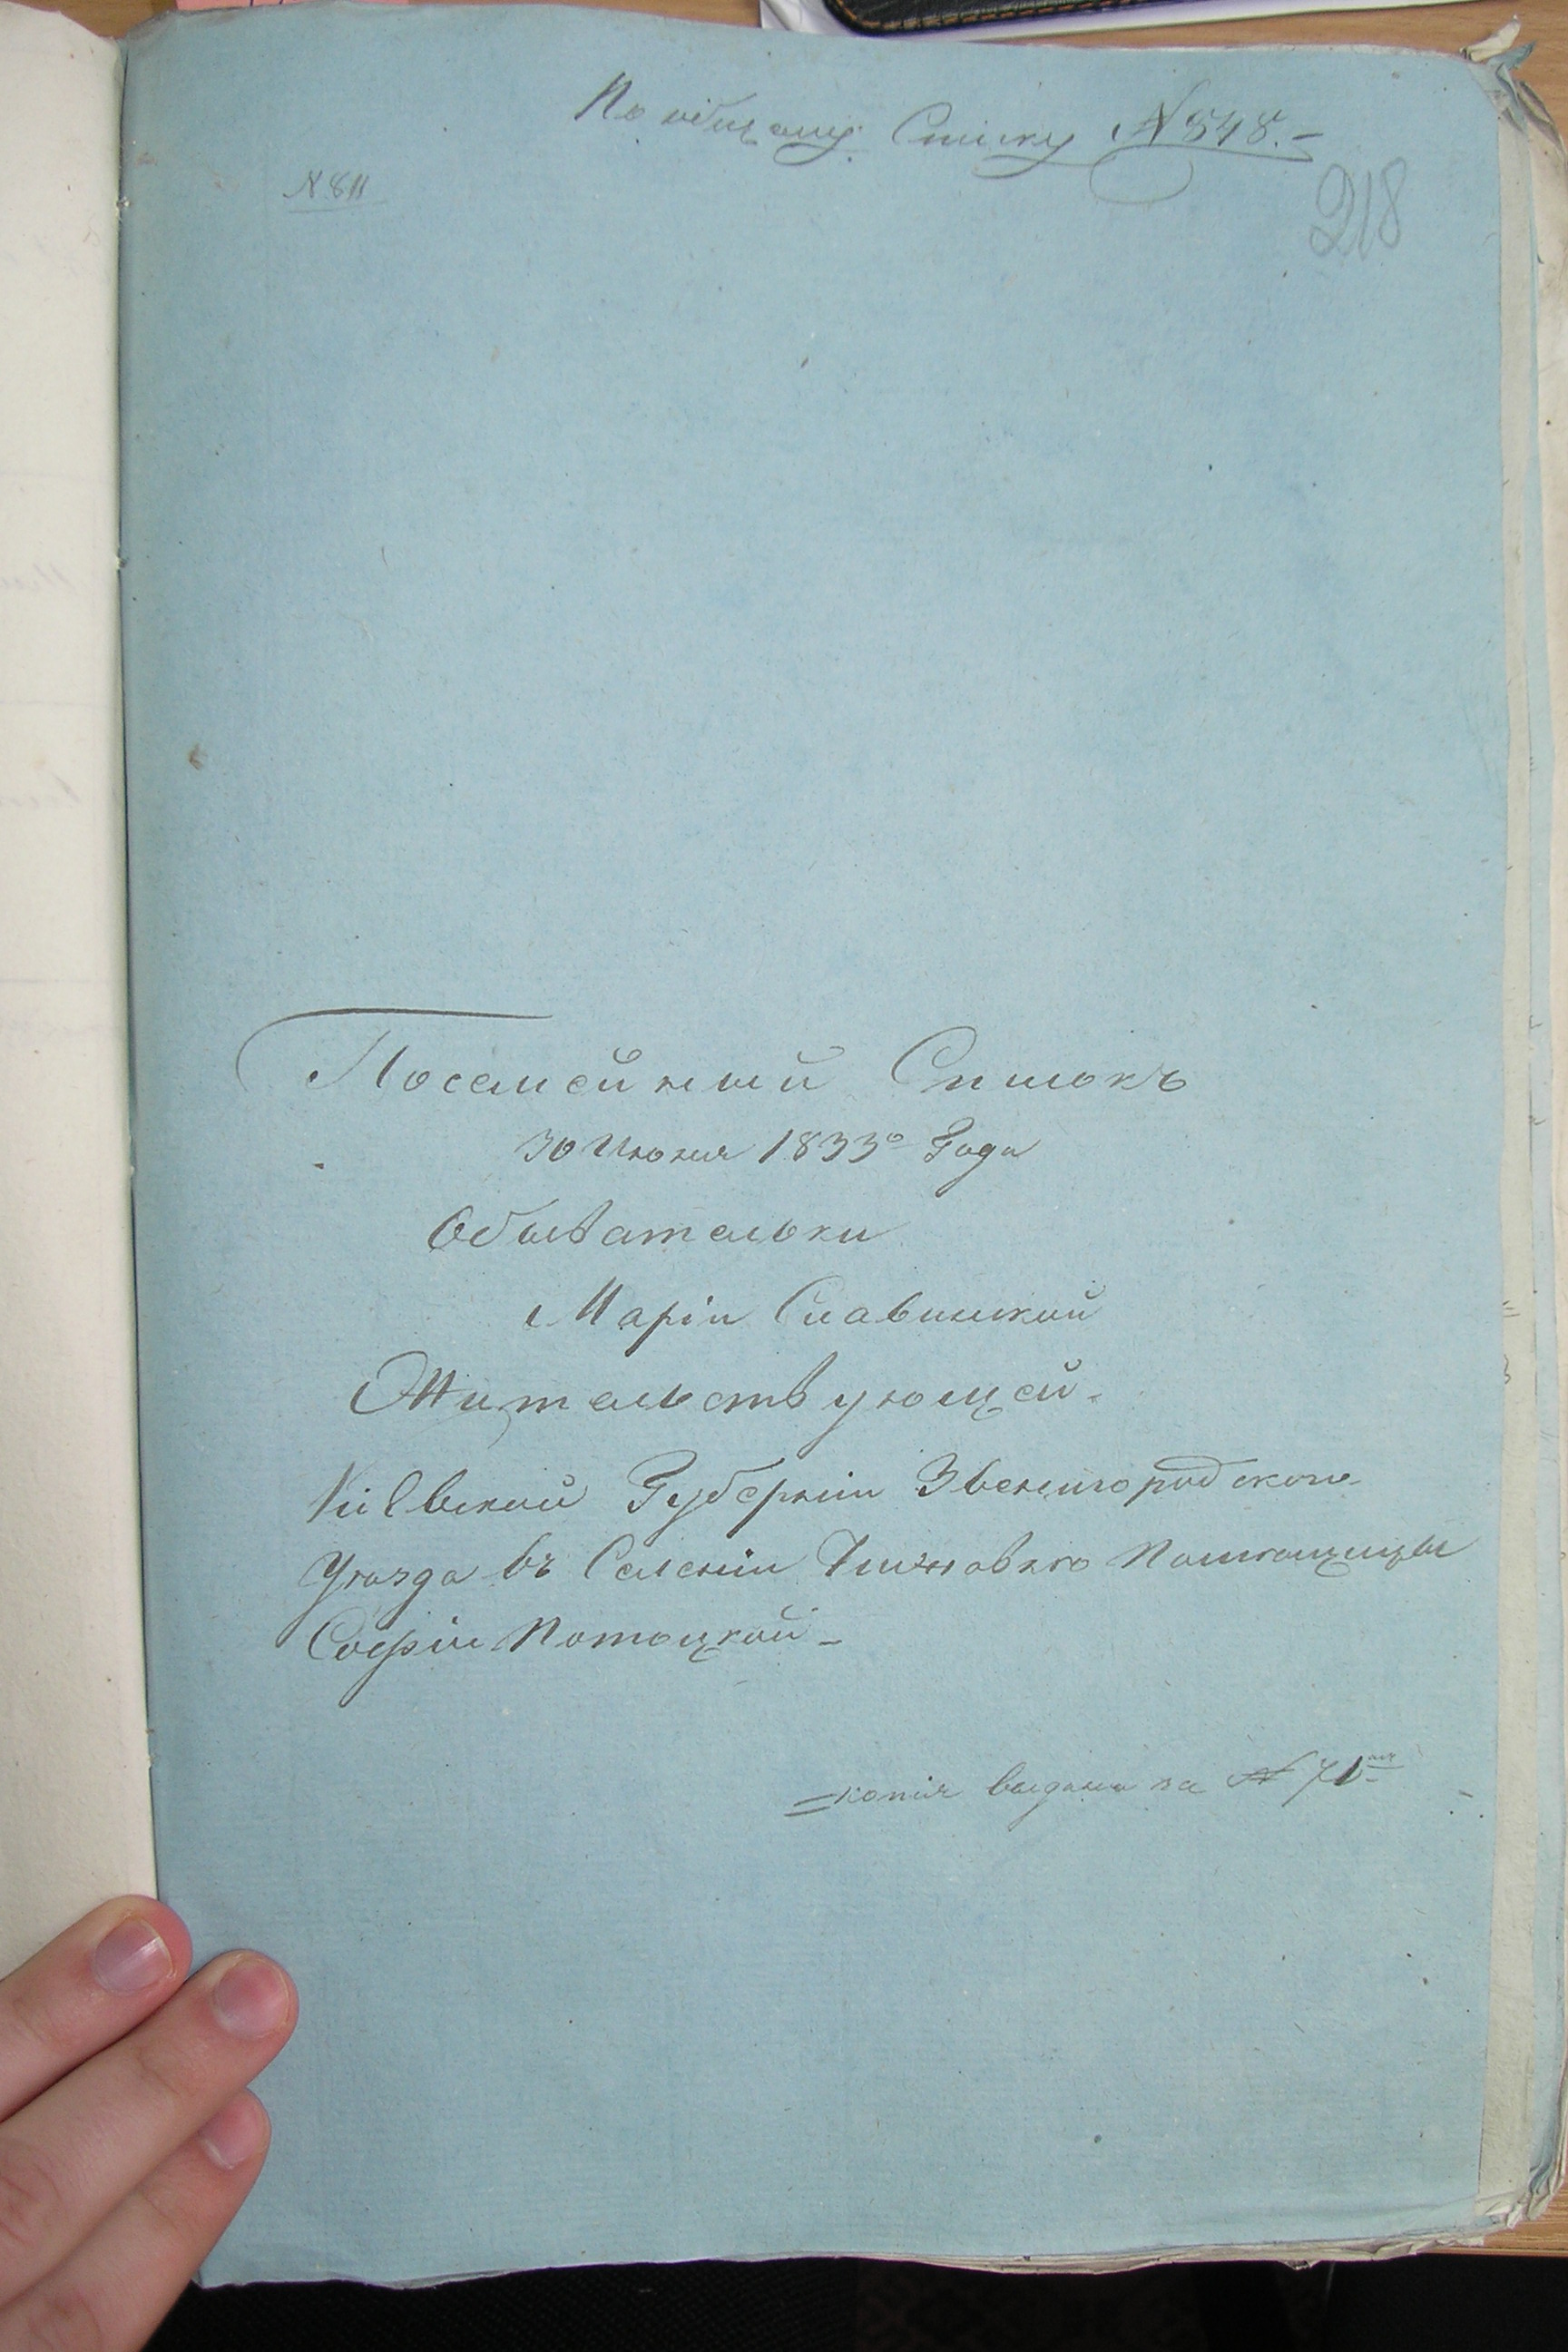 По общему Списку № 548.-
№ 811
218
Посемейный Списокъ
30 Июня 1833º Года
Обывательки
Маріи Славинской
Жительствующей.
Кіевской Губерніи Звенигородскаго
Уѣзда въ Селеніи Помѣщицы
Софіи Потоцкой -
копія выдана за № 71